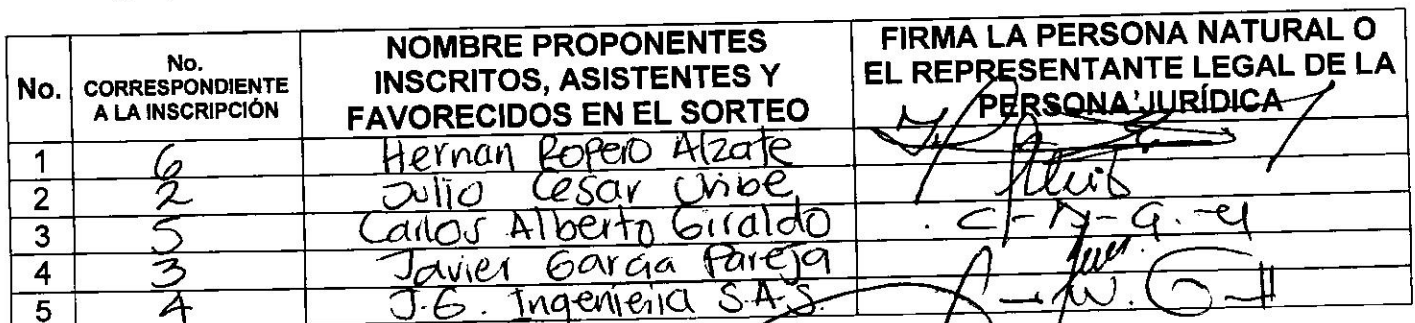 No. No. CORRESPONDIENTE A LA INSCRIPCIÓN NOMBRE PROPONENTES INSCRITOS, ASISTENTES Y FAVORECIDOS EN EL SORTEO FIRMA LA PERSONA NATURAL O EL REPRESENTANTE LEGAL DE LA PERSONA JURÍDICA
1 6 Hernan Ropero Alzate
2 2 Julio Cesar Uribe
3 5 Carlos Alberto Giraldo
4 3 Javier Garcia Pareja
5 4 J.G. Ingenieria S.A.S.